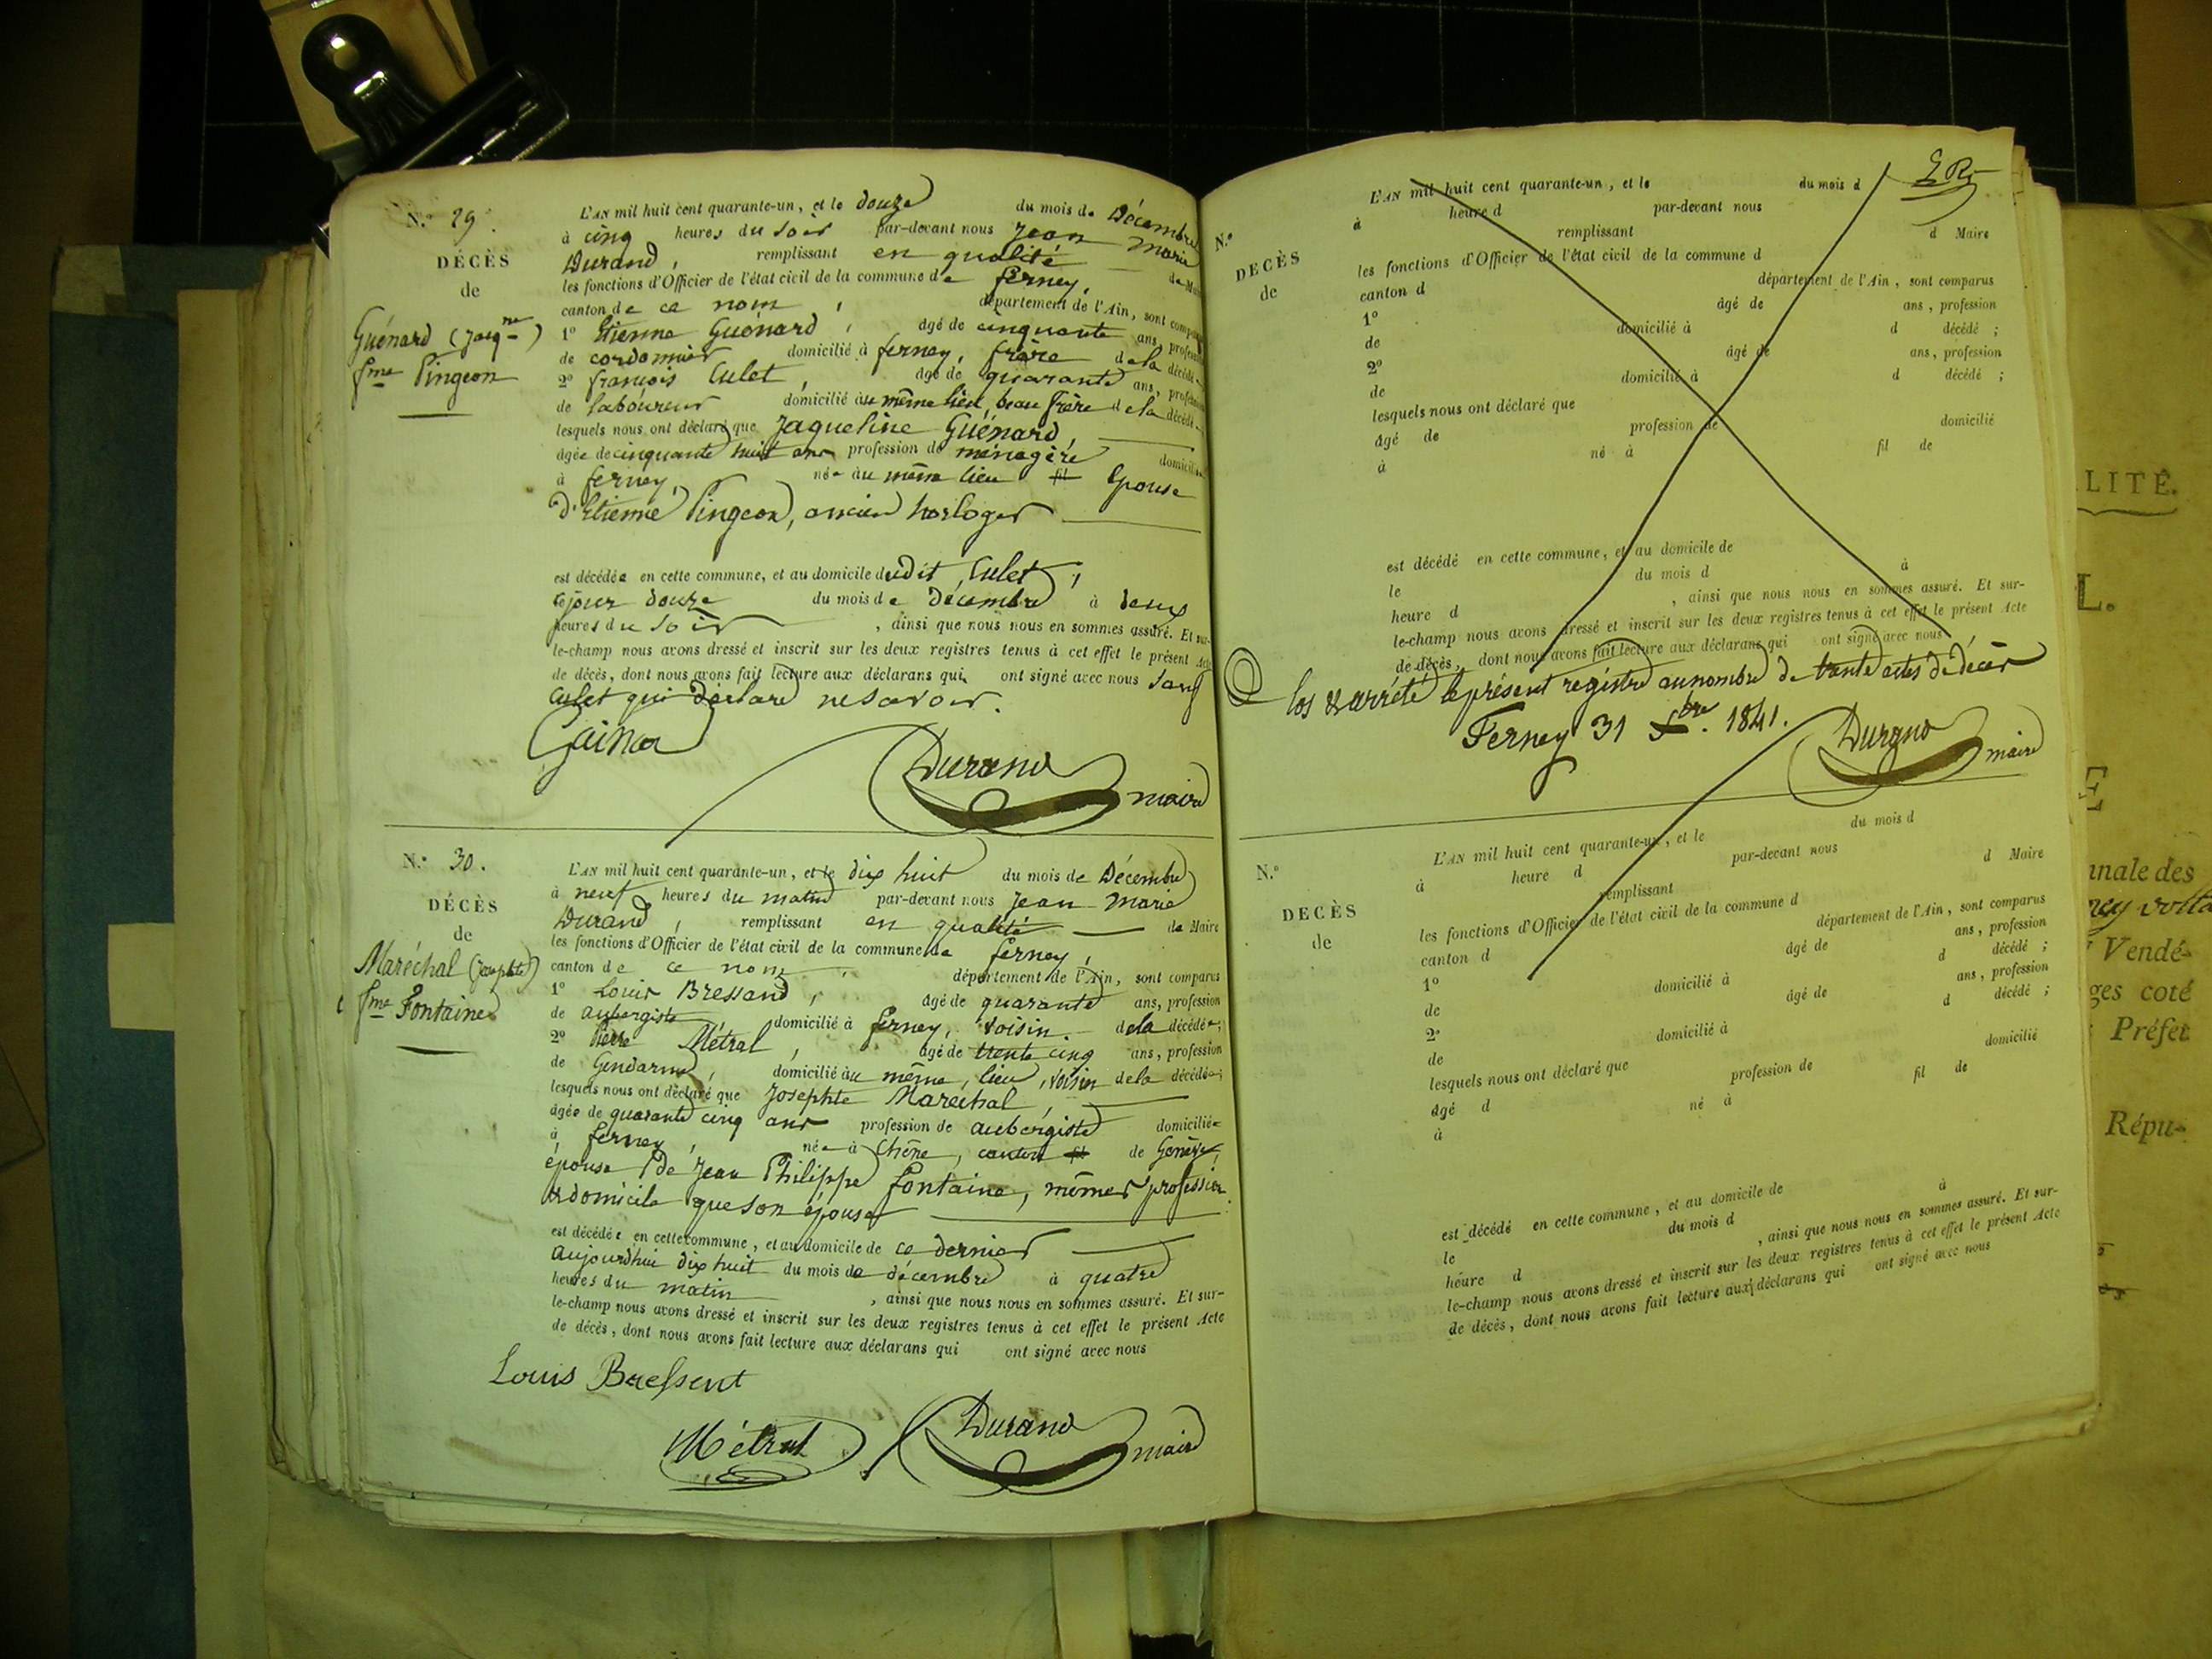 N.° 29.
DÉCÈS
de
Guénard (Jacq.ne)
fme Pingeon
L'AN mil huit cent quarante-un, et le douze du mois de Décembre
à cinq heures du soir par-devant nous Jean Marie
Durand, remplissant en qualité de Maire
les fonctions d'Officier de l'état civil de la commune de ferney,
canton de ce nom, département de l'Ain, sont comparus
1° Etienne Guénard, âgé de cinquante ans, profession
de cordonnier domicilié à ferney, frère de la décédée
2° françois Culet, âgé de quarante ans, profession
de laboureur domicilié au même lieu, beau frère de la décédée
lesquels nous ont déclaré que Jaqueline Guénard,
âgée de cinquante huit ans profession de ménagère domiciliée
à ferney, née au même lieu fil épouse
d'Etienne Pingeon, ancien horloger
est décédée en cette commune, et au domicile dudit Culet,
ce jour douze du mois de décembre à deux
heures du soir, ainsi que nous nous en sommes assuré. Et sur-
le-champ nous avons dressé et inscrit sur les deux registres tenus à cet effet le présent Acte
de décès, dont nous avons fait lecture aux déclarans qui ont signé avec nous sauf
Culet qui déclare ne savoir.
Durand
maire
N.° 30.
DÉCÈS
de
Maréchal (Josephte)
fme Fontaine
L'AN mil huit cent quarante-un, et le dix huit du mois de Décembre
à neuf heures du matin par-devant nous Jean Marie
Durand, remplissant en qualité de Maire
les fonctions d'Officier de l'état civil de la commune de ferney,
canton de ce nom, département de l'Ain, sont comparus
1° Louis Bressand, âgé de quarante ans, profession
de aubergiste domicilié à ferney, voisin de la décédée;
2° Pierre Métral, âgé de trente cinq ans, profession
de Gendarme, domicilié au même, lieu, voisin de la décédée;
lesquels nous ont déclaré que Josephte Marechal,
âgée de quarante cinq ans profession de aubergiste domiciliée
à ferney, née à Chêne, canton fil de Genève,
épouse de Jean Philippe Fontaine, mêmes profession
et domicile que son épouse
est décédée en cette commune, et au domicile de ce dernier
aujourdhui dix huit du mois de décembre à quatre
heures du matin, ainsi que nous nous en sommes assuré. Et sur-
le-champ nous avons dressé et inscrit sur les deux registres tenus à cet effet le présent Acte
de décès, dont nous avons fait lecture aux déclarans qui ont signé avec nous
Louis Bressent
Métral
Durand
maire
N.°
DECÈS
de
L'AN mil huit cent quarante-un, et le du mois d
à heure d par-devant nous
remplissant d Maire
les fonctions d'Officier de l'état civil de la commune d
canton d département de l'Ain, sont comparus
1° âgé de ans, profession
de domicilié à d décédé ;
2° âgé de ans, profession
de domicilié à d décédé ;
lesquels nous ont déclaré que
âgé de profession de domicilié
à né à fil de
est décédé en cette commune, et au domicile de
le du mois d à
heure d , ainsi que nous nous en sommes assuré. Et sur-
le-champ nous avons dressé et inscrit sur les deux registres tenus à cet effet le présent Acte
de décès, dont nous avons fait lecture aux déclarans qui ont signé avec nous
Clos & arrêté le présent régistre au nombre de trente actes de décès
Ferney 31 Xbre. 1841.
Durand
maire
N.°
DECÈS
de
L'AN mil huit cent quarante-un, et le du mois d
à heure d par-devant nous
remplissant d Maire
les fonctions d'Officier de l'état civil de la commune d
canton d département de l'Ain, sont comparus
1° âgé de ans, profession
de domicilié à d décédé ;
2° âgé de ans, profession
de domicilié à d décédé ;
lesquels nous ont déclaré que
âgé d profession de domicilié
à né à fil de
est décédé en cette commune, et au domicile de
le du mois d à
heure d , ainsi que nous nous en sommes assuré. Et sur-
le-champ nous avons dressé et inscrit sur les deux registres tenus à cet effet le présent Acte
de décès, dont nous avons fait lecture aux déclarans qui ont signé avec nous
LITÉ.
L.
E
nnale des
ney volta
Vendé-
ges coté
Préfet
Répu-